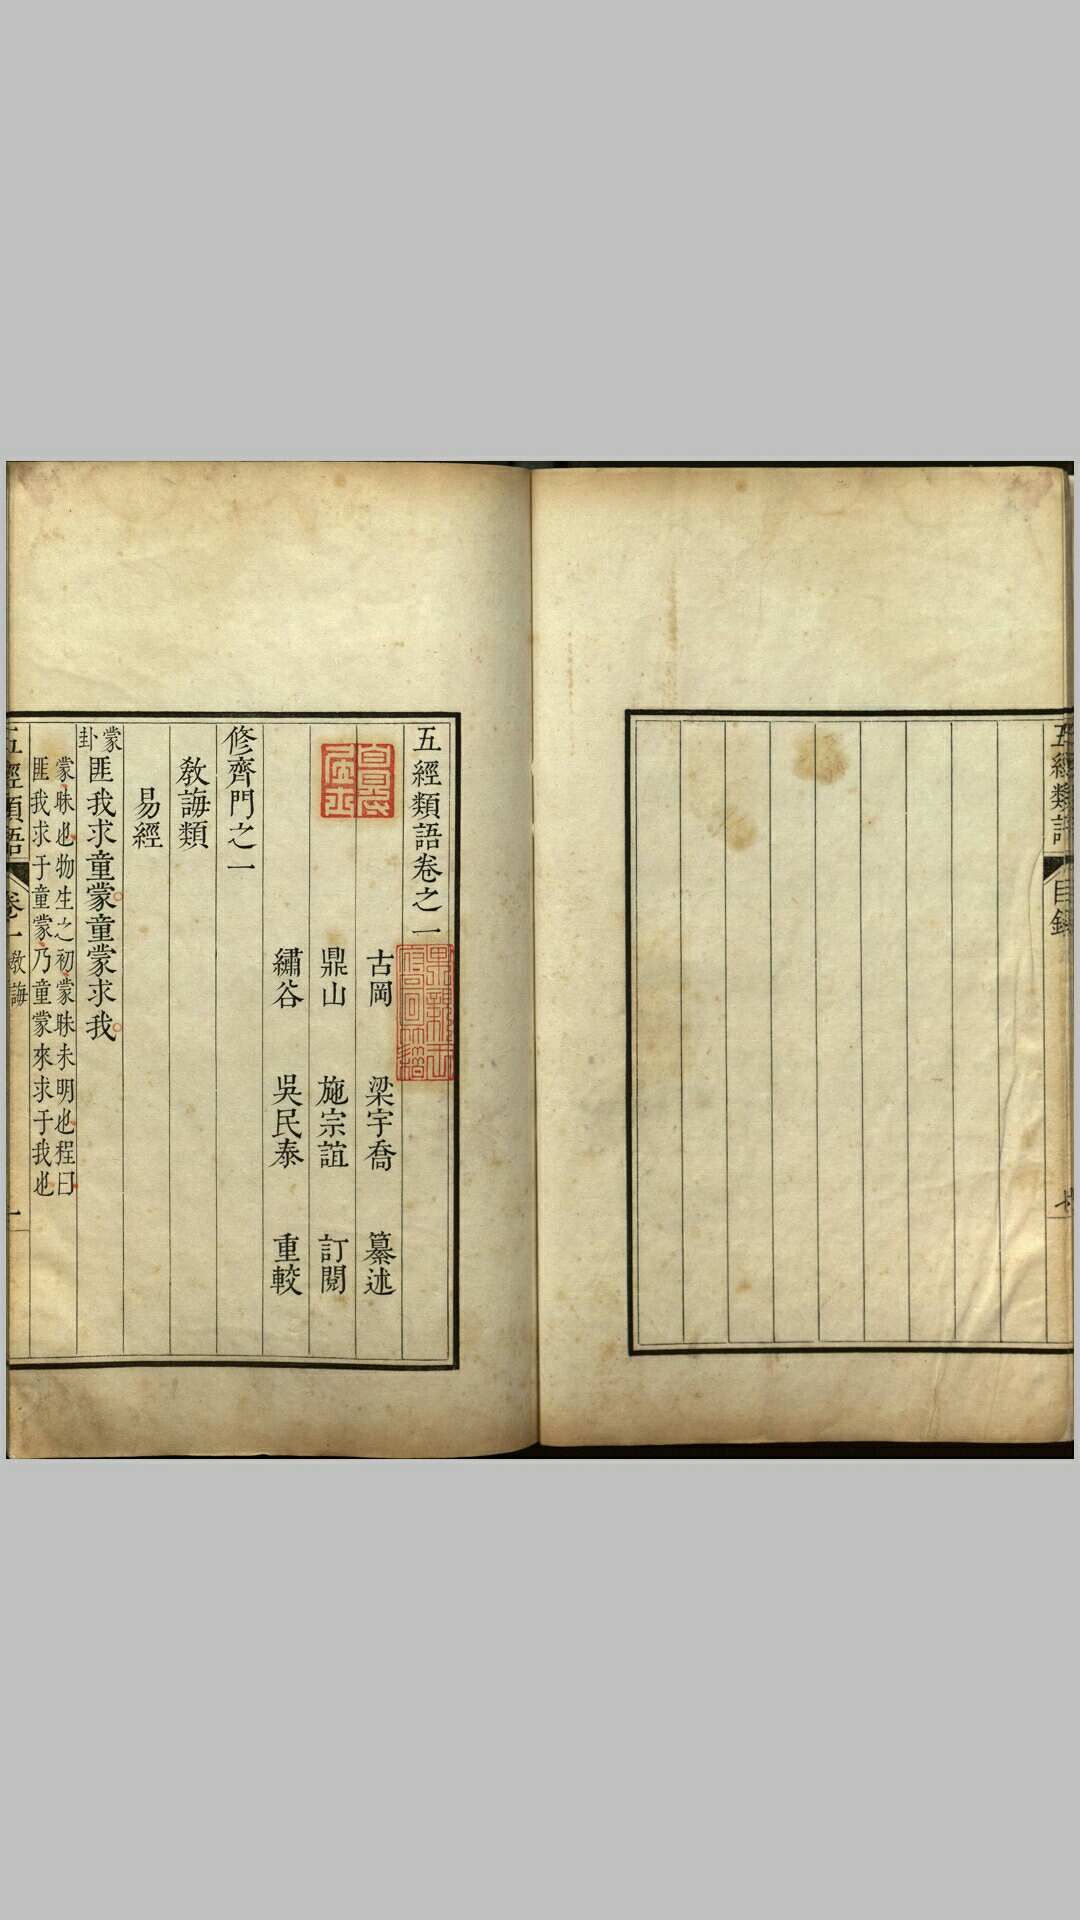 五經類語
目錄
七
五經類語卷之一
古岡 梁宇喬 纂述
鼎山 施宗誼 訂閱
繡谷 吳民泰 重較
修齊門之一
教誨類
易經
蒙卦 匪我求童蒙童蒙求我
蒙昧也物生之初蒙昧未明也程曰
匪我求于童蒙乃童蒙來求于我也
五經類語
卷一
教誨
一